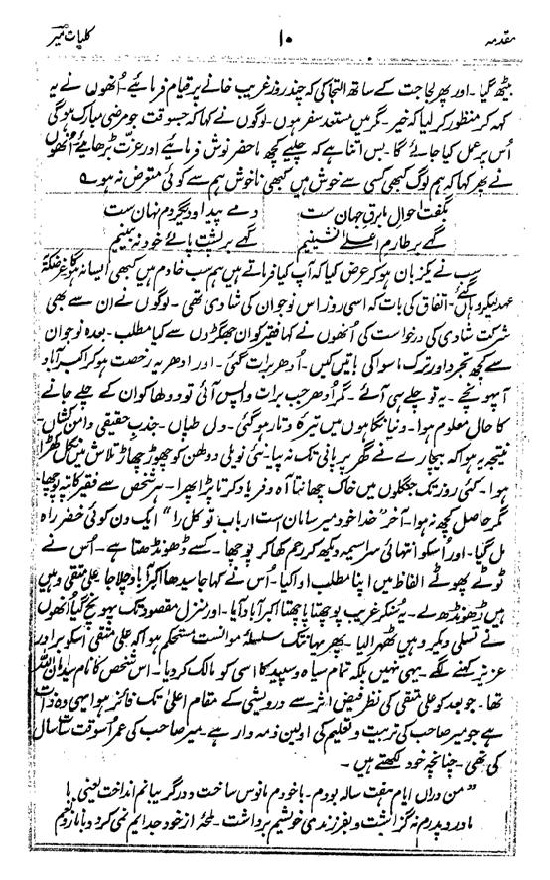 مقدمہ ۱۰ کلیات میر
بیٹھ گیا ۔ اور پھر لجاجت کے ساتھ التجا کی کہ چند روز غریب خانے پر قیام فرمائیے ۔ اُنھوں نے یہ
کہہ کر منظور کر لیا کہ خیر ۔ گر میں مستعد سفر ہوں ۔ لوگوں نے کہا کہ جسوقت جو مرضی مبارک ہو گی
اُس پر عمل کیا جائے گا ۔ بس اتنا ہے کہ چلیے کچھ ماحضر نوش فرمائیے اور عزت بڑھائیے اُنھوں
نے پھر کہا کہ ہم لوگ کبھی کسی سے خوش ہیں کبھی ناخوش ہم سے کوئی معترض نہ ہو ے
بگفت احوال ما برق جہان ست دمے پیدا و دیگر دم نہان ست
گہے بر طارم اعلےٰ نشینیم گہے بر پشت پائے خود نہ بینیم
سب نے یکزبان ہو کر عرض کیا کہ آپ کیا فرماتے ہیں ہم سب خادم ہیں کبھی ایسا نہ ہوگا غرضکہ
عہد لیکر وہاں گئے ۔ اتفاق کی بات کہ اسی روز اس نوجوان کی شادی تھی ۔ لوگوں نے ان سے بھی
شرکت شادی کی درخواست کی اُنھوں نے کہا فقیر کو ان جھگڑوں سے کیا مطلب ۔ بعدہ نوجوان
سے کچھ تجرد اور ترک ماسوا کی باتیں کیں ۔ اُدھر برات گئی ۔ اور ادھر یہ رخصت ہو کر اکبر آباد
آپہونچے ۔ یہ تو چلے ہی آئے ۔ گر اُدھر جب برات واپس آئی تو دولھا کو ان کے چلے جانے
کا حال معلوم ہوا ۔ دنیا نگاہوں میں تیرہ و تار ہو گئی ۔ دل طپاں ۔ جذب حقیقی دامن کشاں ۔
نتیجہ یہ ہوا کہ بیچارے نے گھر پر پانی تک نہ پیا ۔ نئی نویلی دولھن کو چھوڑ چھاڑ تلاش میں نکل کھڑا
ہوا ۔ کئی روز تک جنگلوں میں خاک چھانتا آہ و فریاد کرتا پڑا پھرا ۔ ہر شخص سے فقیر کا پتہ پوچھا
گر حاصل کچھ نہ ہوا ۔ آخر "خدا خود میر سامان ست ارباب توکل را" ایک دن کوئی خضر راہ
مل گیا ۔ اور اُسکو انتہائی سراسیمہ دیکھ کر رحم کھا کر پوچھا ۔ کسے ڈھونڈھتا ہے ۔ اُس نے
ٹوٹے پھوٹے الفاظ میں اپنا مطلب ادا کیا ۔ اُس نے کہا جا سیدھا اکبر آباد چلا جا علی متقی وہیں
ہیں ڈھونڈھ لے ۔ یہ سنکر غریب پوچھتا پاچھتا اکبر آباد آیا ۔ اور منزل مقصود تک پہونچ گیا اُنھوں
نے تسلی دیکر وہیں ٹھہرا لیا ۔ پھر یہانتک سلسلۂ موانست مستحکم ہوا کہ علی متقی اسکو برادر
عزیز کہنے لگے ۔ یہی نہیں بلکہ تمام سیاہ و سپید کا اسی کو مالک کر دیا ۔ اس شخص کا نام سید امان اللہ
تھا ۔ جو بعد کو علی متقی کی نظر فیض اثر سے درویشی کے مقام اعلیٰ تک فائز ہوا یہی وہ ذات
ہے جو میر صاحب کی تربیت و تعلیم کی اولین ذمہ دار ہے ۔ میر صاحب کی عمر اُسوقت سات سال
کی تھی ۔ چنانچہ خود لکھتے ہیں ۔
"من دراں ایام ہفت سالہ بودم ۔ با خودم مانوس ساخت و در گریبانم انداخت یعنی با
مادر و پدرم نہ گزاشت و بفرزندی خویشم برداشت ۔ لمحۂ از خود جدایم نمی کرد و بناز و نعیم